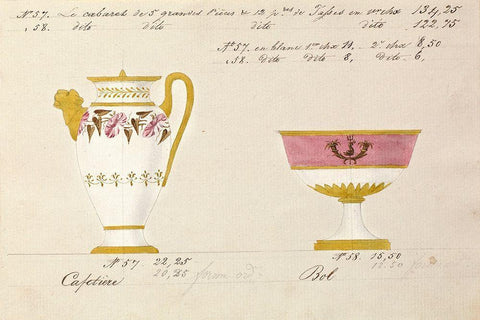 N.º 57. Le cabaret de 5 grandes Pièces & 12 p.res de Tasses en 1er chx 134,25
„ 58. dito dito dito dito 122,75
N.º 57. en blanc 1er chx 11, - 2e chx 8,50
„ 58. dito dito 8, dito - 6,
N.º 57. 22,25
20,25 form ord.
Cafetière
N.º 58. 15,50
Bol